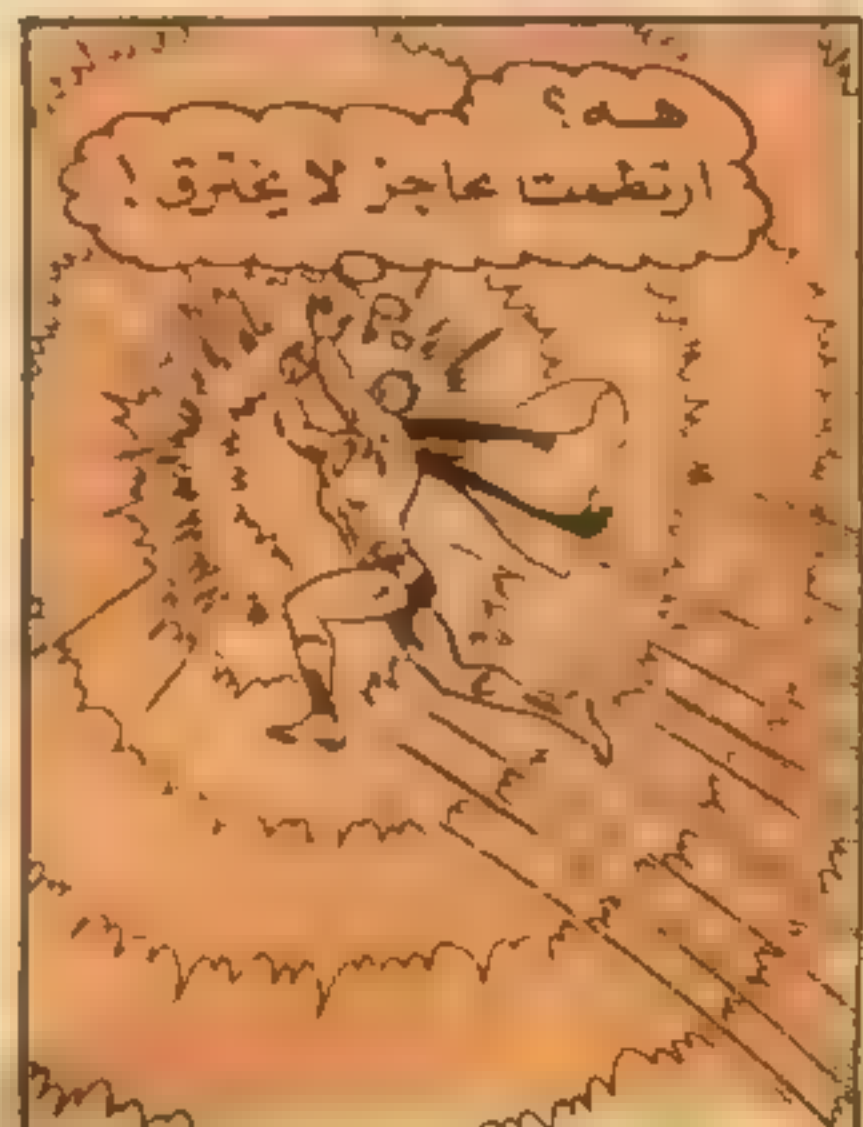 هـه ؟
ارتطمت بحاجز لا يخترق !